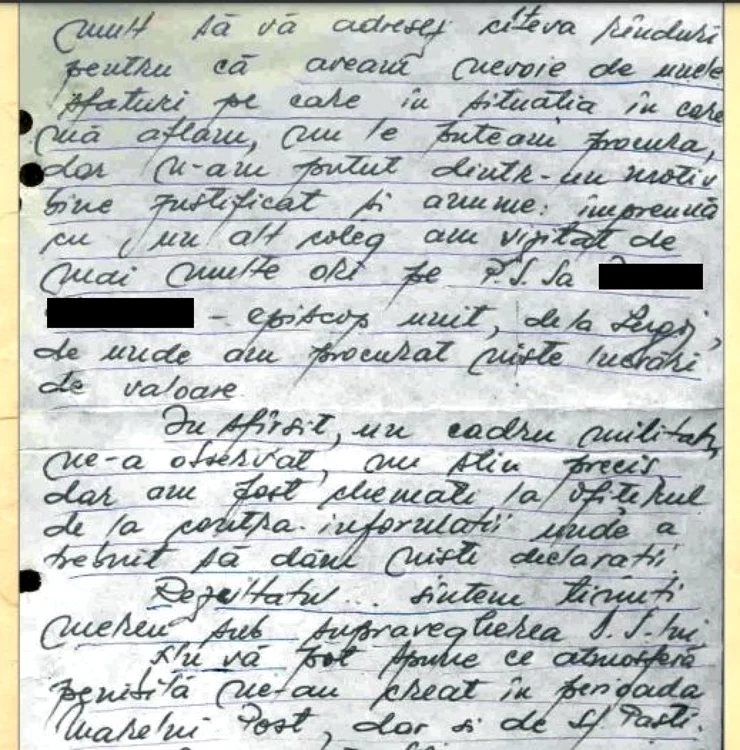 mult să vă adresez cîteva rînduri
pentru că aveam nevoie de unele
sfaturi pe care în situația în care
mă aflam, nu le puteam procura,
dar n-am putut dintr-un motiv
bine justificat și anume: împreună
cu un alt coleg am vizitat de
mai multe ori pe P.S. Sa
- episcop unit, de la Lugoj,
de unde am procurat niște lucrări
de valoare
În sfîrșit, un cadru militar,
ne-a observat, nu știu precis
dar am fost chemați la ofițerul
de la contra-informații unde a
trebuit să dăm niște declarații.
Rezultatul... sîntem ținuți
mereu sub supravegherea S.S.-lui
Nu vă pot spune ce atmosferă
penibilă ne-au creat în perioada
Marelui Post, dar și de Sf. Paști.